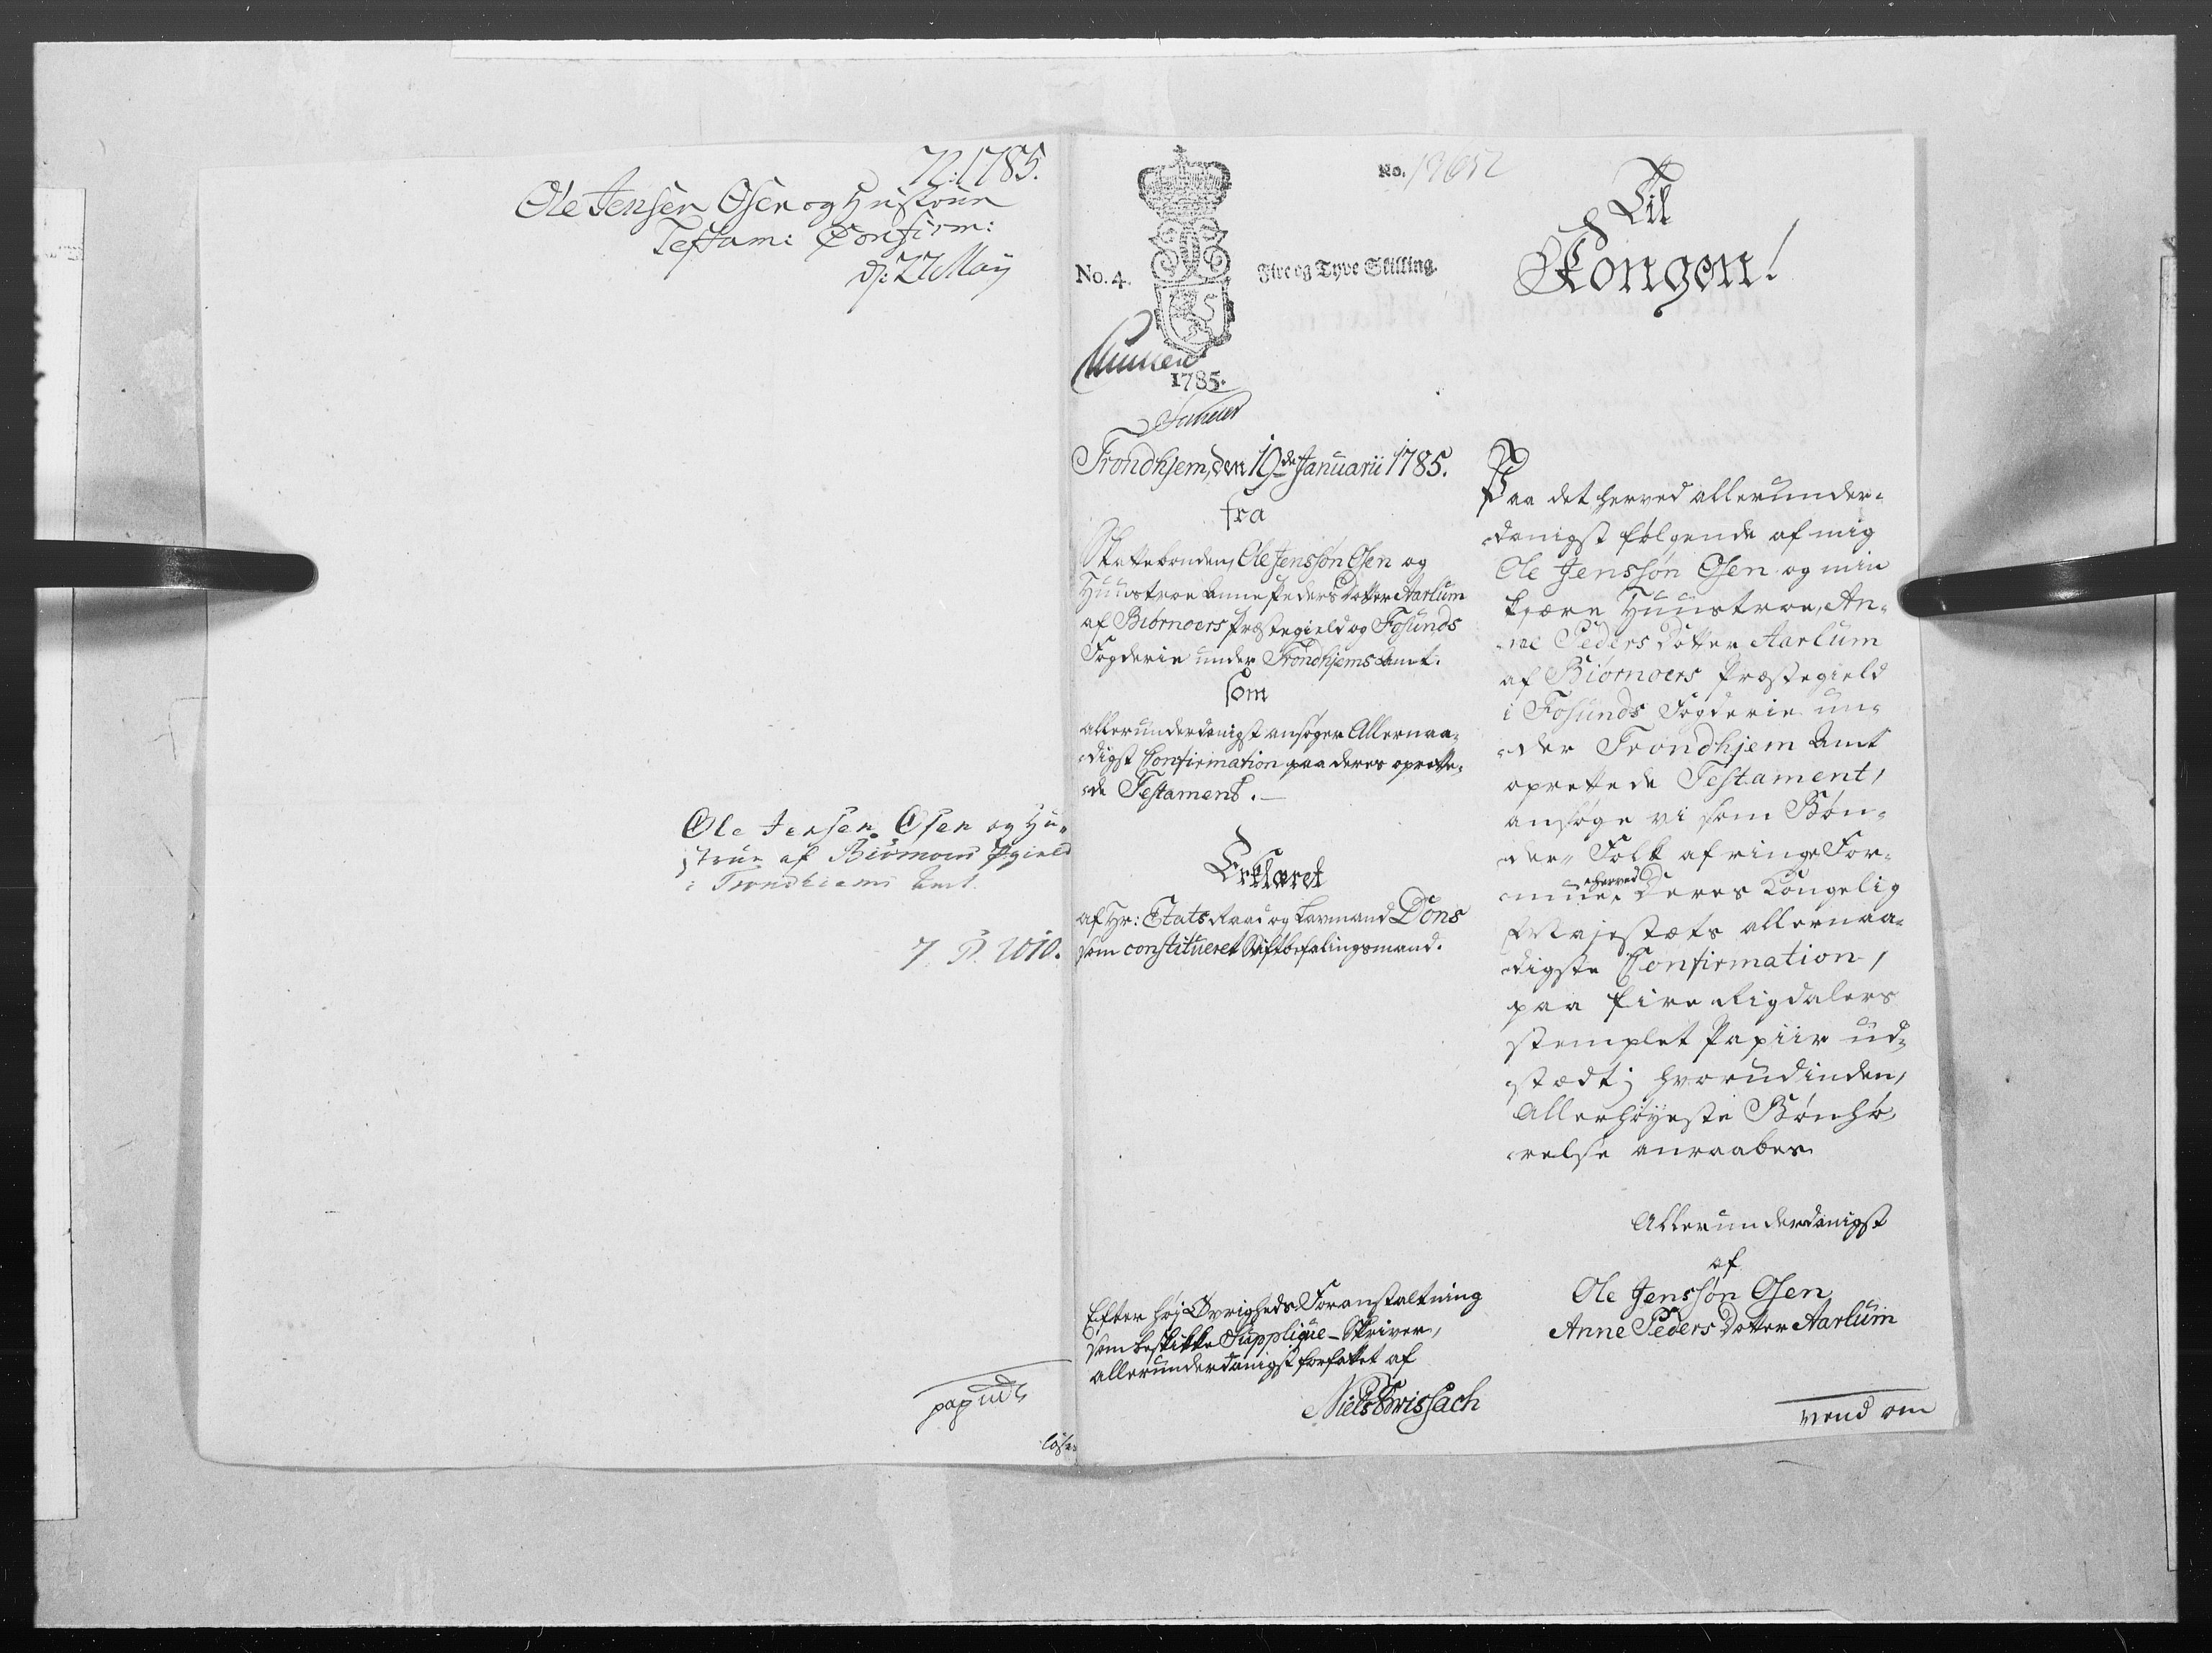 72. 1785.
Ole Jensen Osen og Hustrue
Testam: Confirm:
d: 27 Maÿ
Ole Jensen Osen og Hu-
strue af Biörnoers Pgield
i Trondhiems Amt.
7
pag
No.
No. 4.
Fire og Tyve Skilling.
1785.
Trondhjem, den 19de Januarii 1785.
fra
Skattebonden, Ole Jenssøn Osen og
Huustroe Anne PedersDotter Aarlum
af Biørnoers Præstegield og Fosunds
Fogderie under Trondhjems Amt.
som
allerunderdanigst ansøger Allernaa-
digst Confirmation paa deres oprette-
de Testament.
Erklæret
af Hr: Etats Raad og Laumand Dons
som constitueret Stiftbefalingsmand.
Efter høj Øvrigheds Foranstaltning
som beskikke Supplique-Skriver,
allerunderdanigst forfattet af
Niels Brissach
Til
Kongen!
Paa det herved allerunder-
danigst følgende af mig
Ole Jenssøn Osen og min
kjære Huustroe, An-
ne Peders Dotter Aarlum
af Biørnoers Præstegield
i Fosunds Fogderie un-
der Trondhjem Amt
oprettede Testament,
ansøge vi som Bøn-
der-Folk af ringe For-
mue, herved Deres Kongelig
Majestæts allernaa-
digste Confirmation,
paa fire Rigdalers
stemplet Papiir ud-
stædt; hvorudinden,
Allerhøyeste Bønhø-
relse anraabes.
Allerunderdanigst
af
Ole Jenssøn Osen
Anne Peders Dotter Aarlum
vend om